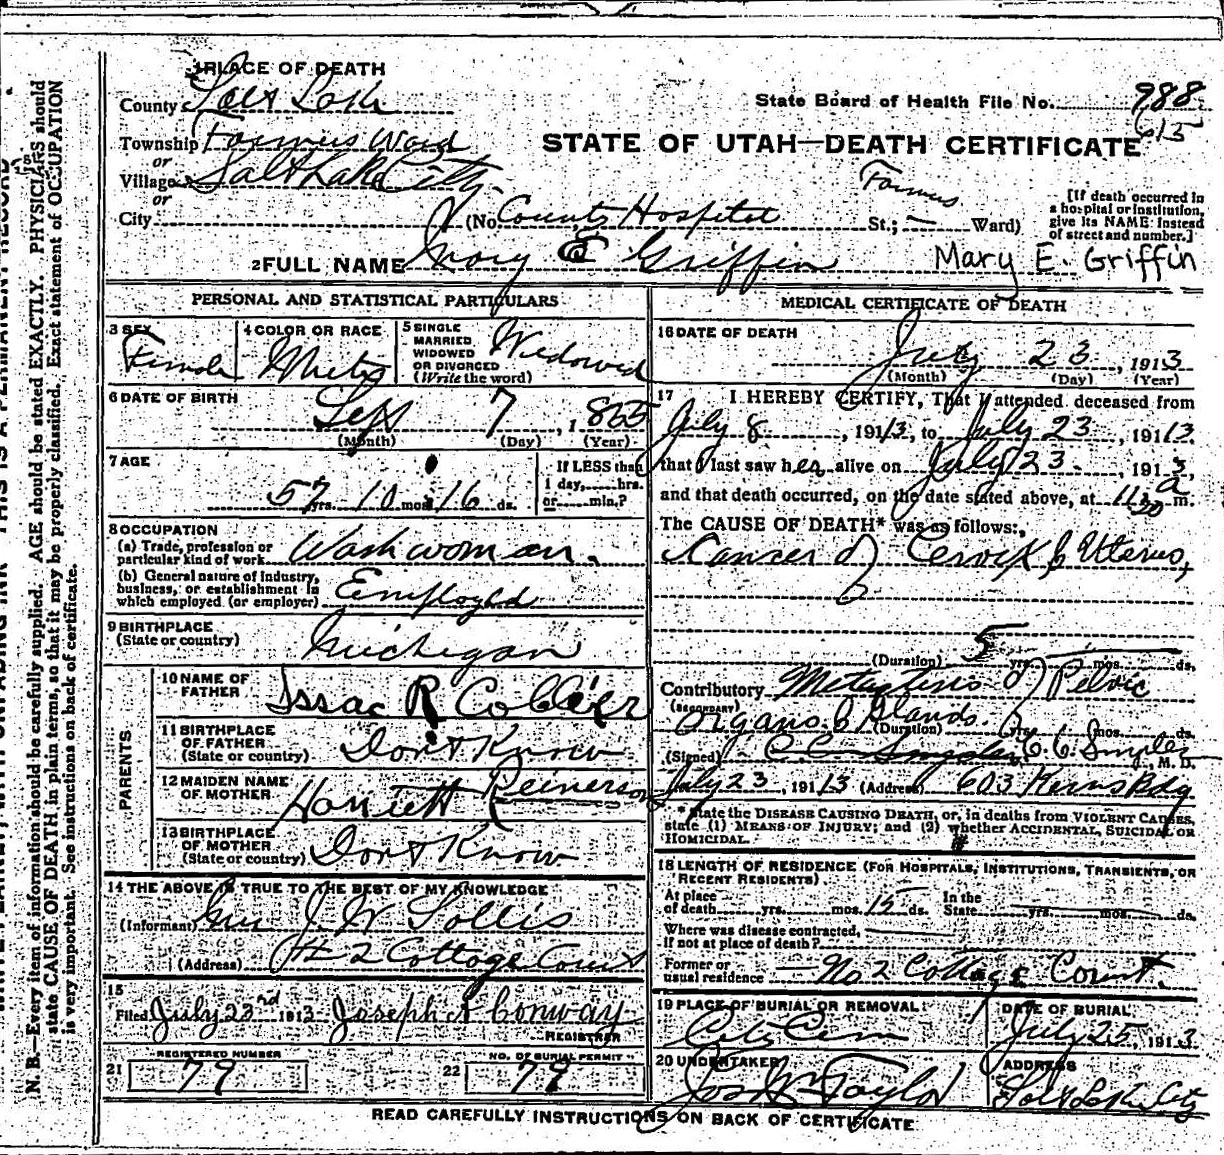 1 PLACE OF DEATH
County Salt Lake
State Board of Health File No. 988
615
Township Farmers Ward
STATE OF UTAH—DEATH CERTIFICATE
or
Village Salt Lake City
or
City
(No. County Hospital St.; — Ward)
Farmers
[If death occurred in
a hospital or institution,
give its NAME instead
of street and number.]
2 FULL NAME Mary E Griffin Mary E. Griffin
PERSONAL AND STATISTICAL PARTICULARS
3 SEX Female
4 COLOR OR RACE White
5 SINGLE
MARRIED
WIDOWED
OR DIVORCED
(Write the word) Widowed
6 DATE OF BIRTH
Sept 7, 1855
(Month) (Day) (Year)
7 AGE
57 yrs. 10 mos. 16 ds.
If LESS than
1 day, hrs.
or min.?
8 OCCUPATION
(a) Trade, profession or
particular kind of work Washwoman.
(b) General nature of Industry,
business, or establishment in
which employed (or employer) Employed
9 BIRTHPLACE
(State or country) Michigan
PARENTS
10 NAME OF
FATHER Issac R Collier
11 BIRTHPLACE
OF FATHER
(State or country) Don't Know
12 MAIDEN NAME
OF MOTHER Harriett Reinerson
13 BIRTHPLACE
OF MOTHER
(State or country) Don't Know
14 THE ABOVE IS TRUE TO THE BEST OF MY KNOWLEDGE
(Informant) J. W Sollis
(Address) # 2 Cottage Court
15
Filed July 23rd 1913 Joseph Conway
REGISTRAR
REGISTERED NUMBER
21 79
NO. OF BURIAL PERMIT
22 79
MEDICAL CERTIFICATE OF DEATH
16 DATE OF DEATH
July 23, 1913
(Month) (Day) (Year)
17 I HEREBY CERTIFY, That I attended deceased from
July 8, 1913, to July 23, 1913
that I last saw her alive on July 23, 1913,
and that death occurred, on the date stated above, at 11:30 a m.
The CAUSE OF DEATH* was as follows:
Cancer of Cervix & Uterus,
(Duration) 5 yrs. mos. ds.
Contributory Metastasis of Pelvic
(SECONDARY)
organs & Glands.
(Duration) yrs. mos. ds.
(Signed) C. C. Snyder, M. D.
July 23, 1913 (Address) 603 Kearns Bldg
*State the DISEASE CAUSING DEATH, or, in deaths from VIOLENT CAUSES,
state (1) MEANS OF INJURY; and (2) whether ACCIDENTAL, SUICIDAL OR
HOMICIDAL.
18 LENGTH OF RESIDENCE (FOR HOSPITALS, INSTITUTIONS, TRANSIENTS, OR
RECENT RESIDENTS)
At place
of death yrs. mos. 15 ds.
In the
State yrs. mos. ds.
Where was disease contracted,
if not at place of death?
Former or
usual residence No 2 Cottage Court.
19 PLACE OF BURIAL OR REMOVAL
City Cem
DATE OF BURIAL
July 25, 1913
20 UNDERTAKER
Jos Wm Taylor
ADDRESS
Salt Lake City
READ CAREFULLY INSTRUCTIONS ON BACK OF CERTIFICATE
N. B.—Every item of information should be carefully supplied. AGE should be stated EXACTLY. PHYSICIANS should
state CAUSE OF DEATH in plain terms, so that it may be properly classified. Exact statement of OCCUPATION
is very important. See instructions on back of certificate.